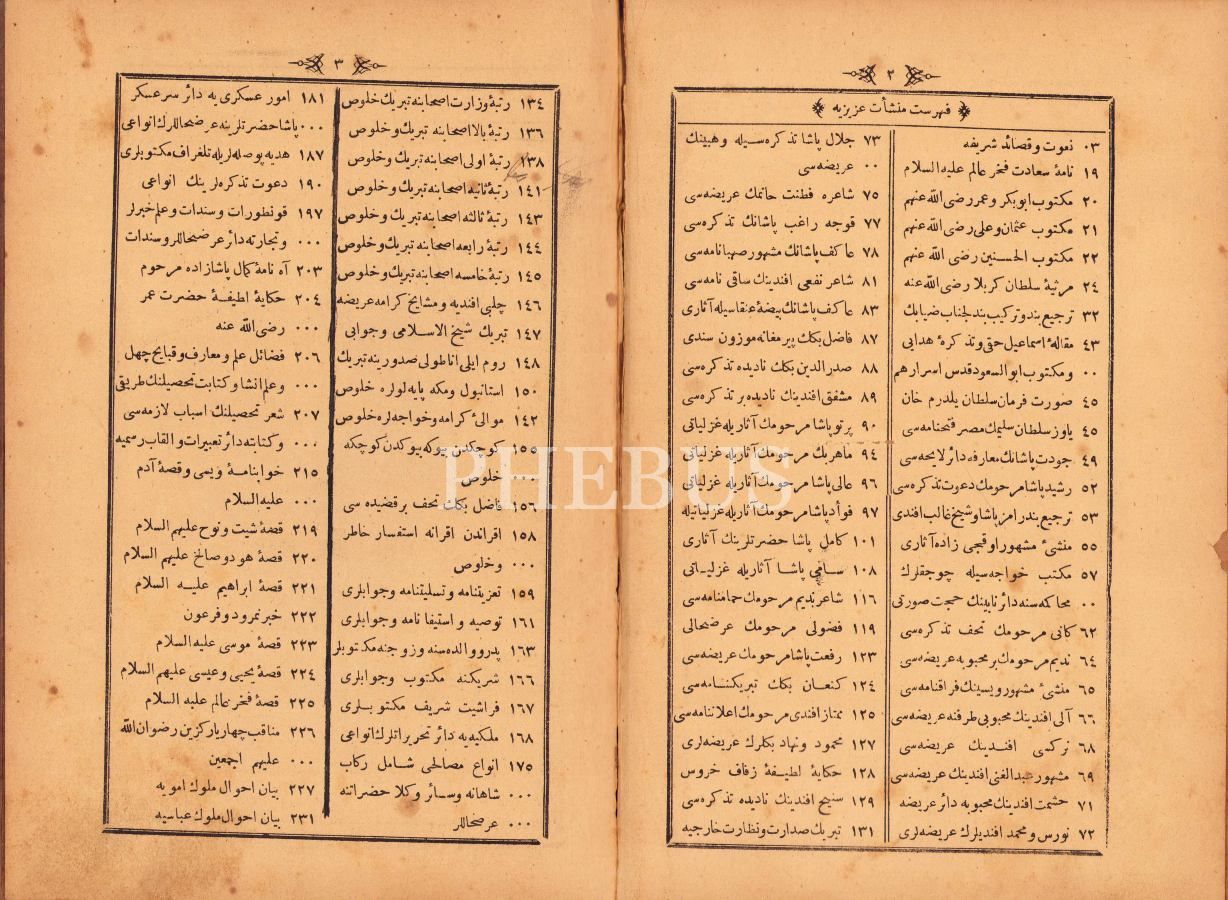 ٢
فهرست منشأت عزیزیه
٠٣ نعوت و قصائد شریفه
١٩ نامهٔ سعادت فخر عالم علیه‌السلام
٢٠ مکتوب ابوبکر و عمر رضی الله عنهم
٢١ مکتوب عثمان و علی رضی الله عنهم
٢٢ مکتوب الحسنین رضی الله عنهم
٢٤ مرثیهٔ سلطان کربلا رضی الله عنه
٣٢ ترجیع بند و ترکیب بند لجناب ضیابك
٤٣ مقالهٔ اسماعیل حقی و تذکرهٔ هدایی
٠٠ و مکتوب ابوالسعود قدس اسرارهم
٤٥ صورت فرمان سلطان یلدرم خان
٤٥ یاوز سلطان سلیمك مصر فتحنامه‌سی
٤٩ جودت پاشانك معارفه دائر لایحه‌سی
٥٢ رشید پاشا مرحومك دعوت تذکره‌سی
٥٣ ترجیع بند رامز پاشا و شیخ غالب افندی
٥٥ منشیٔ مشهور اوقجی زاده آثاری
٥٧ مکتب خواجه‌سیله چوجقلرك
٠٠ محاکمه‌سنه دائر نابینك حجت صورتی
٦٢ کانی مرحومك تحف تذکره‌سی
٦٤ ندیم مرحومك بر محبوبه عریضه‌سی
٦٥ منشیٔ مشهور ویسینك فراقنامه‌سی
٦٦ آلی افندینك محبوبی طرفنه عریضه‌سی
٦٨ نرکسی افندینك عریضه‌سی
٦٩ مشهور عبدالغنی افندینك عریضه‌سی
٧١ حشمت افندینك محبوبه دائر عریضه
٧٢ نورس و محمد افندیلرك عریضه‌لری
٧٣ جلال پاشا تذکره‌سیله وهبینك
٠٠ عریضه‌سی
٧٥ شاعره فطنت خانمك عریضه‌سی
٧٧ قوجه راغب پاشانك تذکره‌سی
٧٨ عاکف پاشانك مشهور صهبانامه‌سی
٨١ شاعر نفعی افندینك ساقی نامه‌سی
٨٣ عاکف پاشانك بیضهٔ عنقاسیله آثاری
٨٧ فاضل بکك پیر مغانه موزون سندی
٨٨ صدرالدین بكك نادیده تذکره‌سی
٨٩ مشفق افندینك نادیده بر تذکره‌سی
٩٠ پرتو پاشا مرحومك آثاریله غزلیاتی
٩٤ ماهر بك مرحومك آثاریله غزلیاتی
٩٦ عالی پاشا مرحومك آثاریله غزلیاتی
٩٧ فوأد پاشا مرحومك آثاریله غزلیاتیله
١٠١ کامل پاشا حضرتلرینك آثاری
١٠٨ سامی پاشا آثاریله غزلیاتی
١١٦ شاعر ندیم مرحومك حمامنامه‌سی
١١٩ فضولی مرحومك عرضحالی
١٢٣ رفعت پاشا مرحومك عریضه‌سی
١٢٤ کنعان بكك تبریکنامه‌سی
١٢٥ ممتاز افندی مرحومك اعلاننامه‌سی
١٢٧ محمود و نهاد بکلرك عریضه‌لری
١٢٨ حکایهٔ لطیفهٔ زفاف خروس
١٢٩ سنیح افندینك نادیده تذکره‌سی
١٣١ تبریك صدارت و نظارت خارجیه
٣
١٣٤ رتبهٔ وزارت اصحابنه تبریك خلوص
١٣٦ رتبهٔ بالا اصحابنه تبریك و خلوص
١٣٨ رتبهٔ اولی اصحابنه تبریك و خلوص
١٤١ رتبهٔ ثانیه اصحابنه تبریك و خلوص
١٤٣ رتبهٔ ثالثه اصحابنه تبریك و خلوص
١٤٤ رتبهٔ رابعه اصحابنه تبریك و خلوص
١٤٥ رتبهٔ خامسه اصحابنه تبریك و خلوص
١٤٦ چلبی افندیه و مشایخ کرامه عریضه
١٤٧ تبریك شیخ الاسلامی و جوابی
١٤٨ روم ایلی اناطولی صدورینه تبریك
١٥٠ استانبول و مکه پایه‌لولره خلوص
١٤٢ موالیٔ کرامه و خواجه‌لره خلوص
١٥٥ کوچکدن بیوکه بیوکدن کوچکه
٠٠٠ خلوص
١٥٦ فاضل بكك تحف بر قصیده سی
١٥٨ اقراندن اقرانه استفسار خاطر
٠٠٠ و خلوص
١٥٩ تعزیتنامه و تسلیتنامه و جوابلری
١٦١ توصیه و استیفا نامه و جوابلری
١٦٣ پدر و والده‌سنه و زوجنه مکتوبلر
١٦٦ شریکنه مکتوب و جوابلری
١٦٧ فراشیت شریف مکتوبلری
١٦٨ ملکیه‌یه دائر تحریراتلرك انواعی
١٧٥ انواع مصالحی شامل رکاب
٠٠٠ شاهانه و سائر وکلا حضراتنه
٠٠٠ عرضحاللر
١٨١ امور عسکری یه دائر سر عسکر
٠٠٠ پاشا حضرتلرینه عرضحاللرك انواعی
١٨٧ هدیه پوصله‌لریله تلغراف مکتوبلری
١٩٠ دعوت تذکره‌لرینك انواعی
١٩٧ قونطورات و سندات و علم خبرلر
٠٠٠ و تجارته دائر عرضحاللر و سندات
٢٠٣ آه نامهٔ کمال پاشازاده مرحوم
٢٠٤ حکایهٔ لطیفهٔ حضرت عمر
٠٠٠ رضی الله عنه
٢٠٦ فضائل علم و معارف و قبایح جهل
٠٠٠ و علم انشا و کتابت تحصیلنك طریقی
٢٠٧ شعر تحصیلنك اسباب لازمه‌سی
٠٠٠ و کتابته دائر تعبیرات و القاب رسمیه
٢١٥ خوابنامهٔ ویسی و قصهٔ آدم
٠٠٠ علیه السلام
٢١٩ قصهٔ شیت و نوح علیهم السلام
٢٢٠ قصهٔ هود و صالح علیهم السلام
٢٢١ قصهٔ ابراهیم علیه السلام
٢٢٢ خبر نمرود و فرعون
٢٢٣ قصهٔ موسی علیه السلام
٢٢٤ قصهٔ یحیی و عیسی علیهم السلام
٢٢٥ قصهٔ فخر عالم علیه السلام
٢٢٦ مناقب چهار یار کزین رضوان الله
٠٠٠ علیهم اجمعین
٢٢٧ بیان احوال ملوك امویه
٢٣١ بیان احوال ملوك عباسیه
PHEBUS